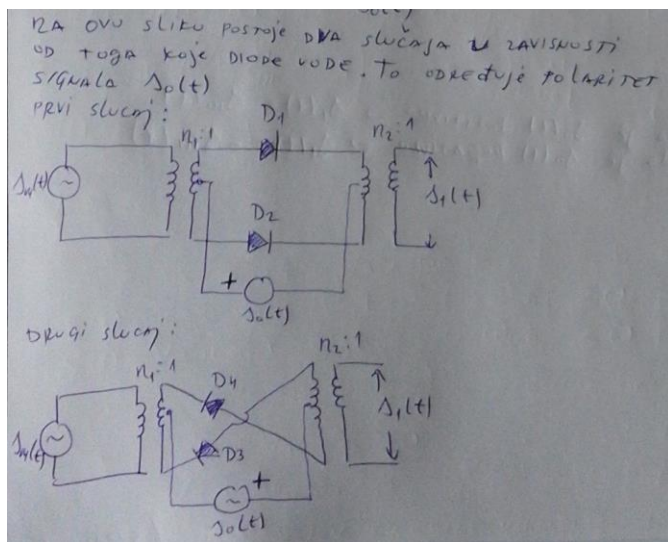 NA OVU SLIKU POSTOJE DVA SLUČAJA U ZAVISNOSTI
OD TOGA KOJE DIODE VODE. TO ODREĐUJE POLARITET
SIGNALA s₀(t)
PRVI SLUCAJ:
D1
n₁:1
n₂:1
sₘ(t)
s₁(t)
D2
+
s₀(t)
DRUGI SLUCAJ:
n₁:1
n₂:1
D4
sₘ(t)
s₁(t)
D3
+
s₀(t)